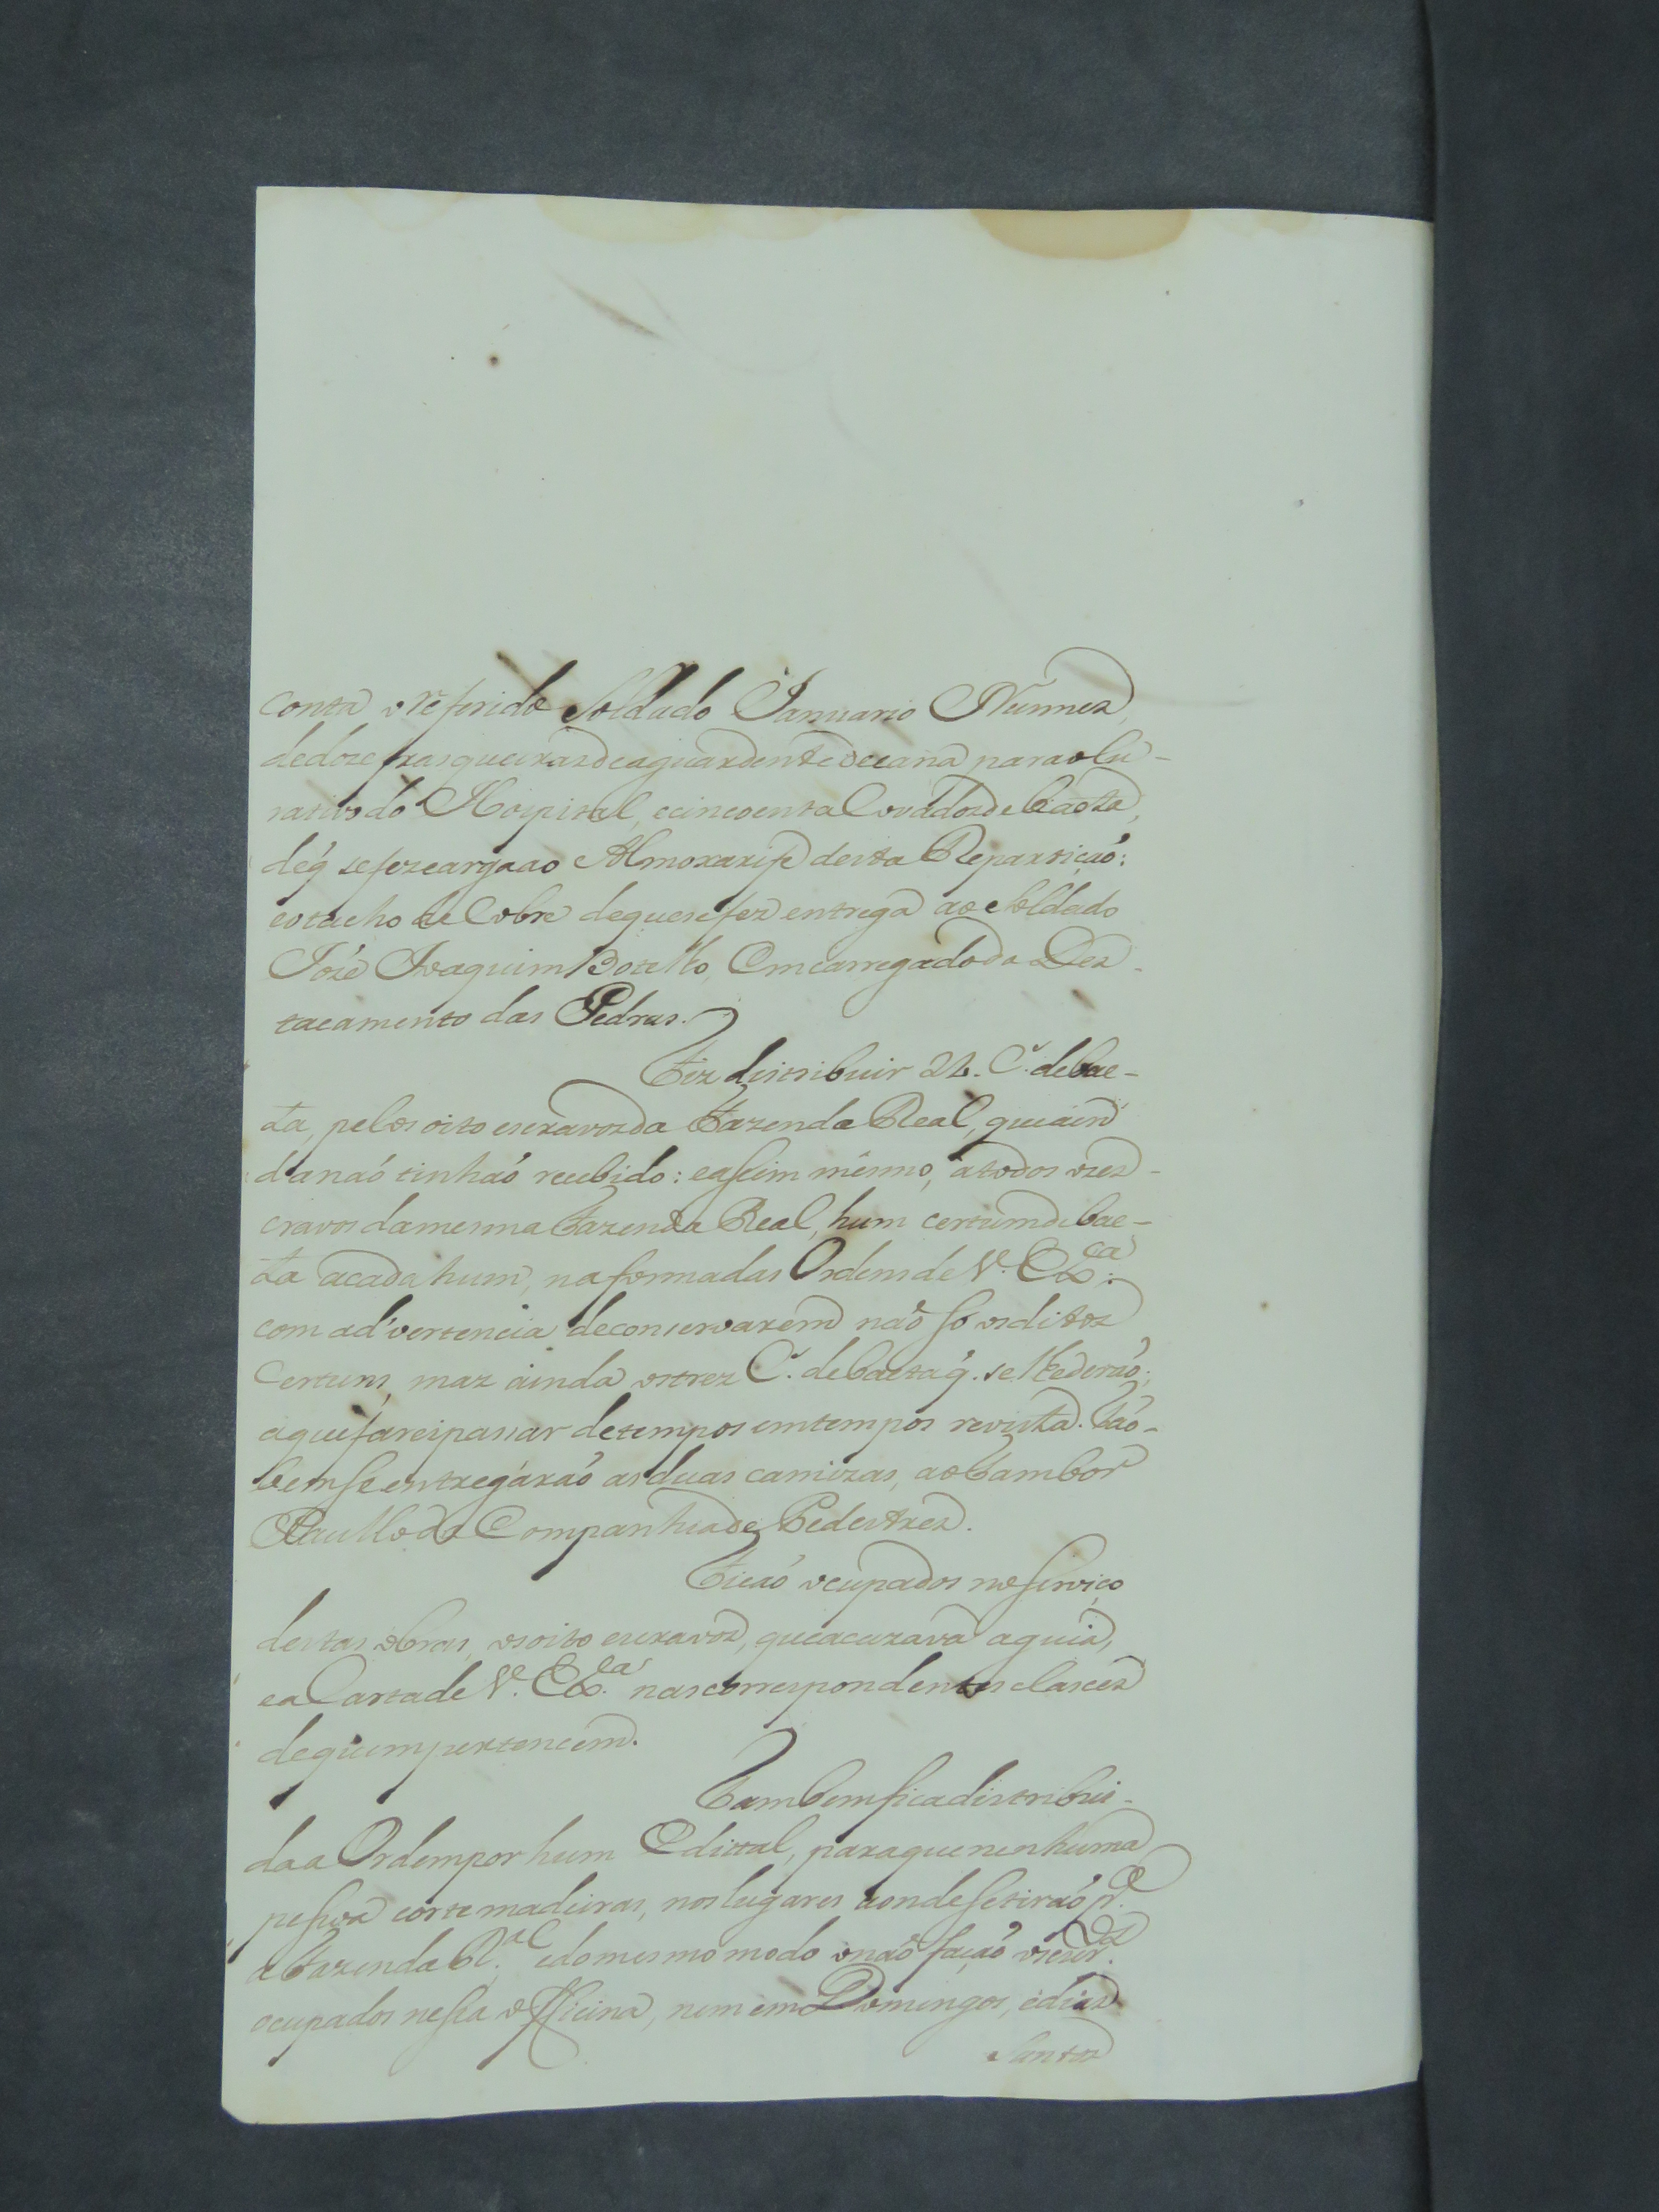 conta o referido Soldado Januario Nunnez,
dedoze frasqueiras de aguardente de cana para o lu-
rativo do Hospital, ecincoenta Covados de Baeta,
deq̃ sefez carga ao Almoxarife desta Repartição:
eotacho de Cobre dequesefez entrega ao Soldado
Jozé Joaquim Botelho, Emcarregado do Dez-
tacamento das Pedras.
Fiz distribuir 24. C.ˢ debae-
ta, pelos oito escravos da Fazenda Real, queain
da naõ tinhaõ recebido: eassim mêsmo, atodos osez-
cravos damesma Fazenda Real, hum certum de bae-
ta acada hum, naforma das Ordens de V. Ex.ᶜᵃ:
com advertencia deconservarem naõ só os ditoz
Certuns, maz ainda ostrez C.ˢ debaeta q̃. se lhe deraõ;
aque farei passar de tempos emtempos revista. Taõ-
bem se entregáraõ as duas camizas, ao Tambor
Paullo da Companhia de Pedestrez.
Ficaõ ocupados no serviço
destas obras, os oito escravoz, queacuzava aguia,
ea Carta de V. Ex.ᶜᵃ nas correspondentes clascez
dequem pertencem.
Tambem fica distribui-
da a Ordem por hum Edittal, paraque nenhuma
pessoa corte madeiras, nos lugares aonde setiraõ p.ᵃ
a Fazenda R.ᵃˡ edomesmo modo onaõ façaõ os escr.ᵒˢ
ocupados nessa Officina, nem em Domingos, e diaz
Santoz